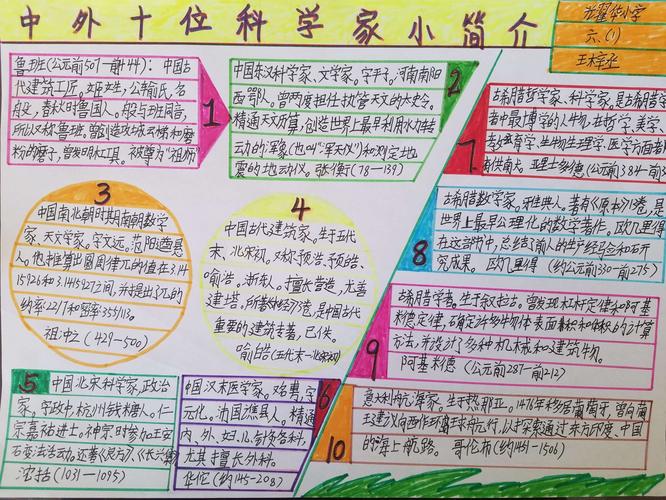 中外十位科学家小简介
光翟华小学
六、(1)
王梓丞
1
鲁班(公元前507-前444):中国古
代建筑工匠。姬姓,公输氏,名
般,春秋时鲁国人。般与班同音,
所以又称鲁班,曾创造攻城云梯和磨
粉的磨子,曾发明木工具。被尊为"祖师"
2
中国东汉科学家、文学家。字平子,河南南阳
西鄂人。曾两度担任执管天文的太史令。
精通天文历算,创造世界上最早利用水力转
动的浑象(也叫"浑天仪")和测定地
震的地动仪。张衡(78-139)
3
中国南北朝时期南朝数学
家、天文学家。字文远。范阳遒县
人。他推算出圆周律兀的值在3.14
15926和3.1415927之间,并提出了兀的
约率22/7和密率355/113。
祖冲之(429-500)
4
中国古代建筑家。生于五代
末、北宋初。又称预浩、预皓、
喻浩。浙东人。擅长营造,尤善
建塔。所著《木经》3卷,是中国古代
重要的建筑专著,已佚。
喻皓(五代末-北宋初)
5
中国北宋科学家,政治
家。字存中,杭州钱塘人。仁
宗嘉祐进士。神宗时参加王安
石变法活动。还著《良方》、《长兴集》
沈括(1031-1095)
6
中国汉末医学家。又名旉,字
元化。沛国谯县人。精通
内、外、妇、儿、针灸各科。
尤其擅长外科。
华佗(约145-208)
7
古希腊哲学家、科学家,是古希腊学
者中最博学的人物,在哲学、美学、
教育学、生物生理学、医学方面都
亚里士多德(公元前384-前3
8
古希腊数学家。雅典人。著有《原本》13卷,是
世界上最早公理化的数学著作。欧几里得
在这部书中,总结了前人的生产经验和研
究成果。 欧几里得(约公元前330-前275)
9
古希腊学者。生于叙拉古。曾发现杠杆定律和阿基
米德定律,确定许多物体表面积和体积的计算
方法,并设计了多种机械和建筑物。
阿基米德(公元前287-前212)
10
意大利航海家。生于热那亚。1476年移居葡萄牙,曾向葡
王建议向西作环球航行,以才探索通过东方印度、中国
的海上航路。哥伦布(约1451-1506)